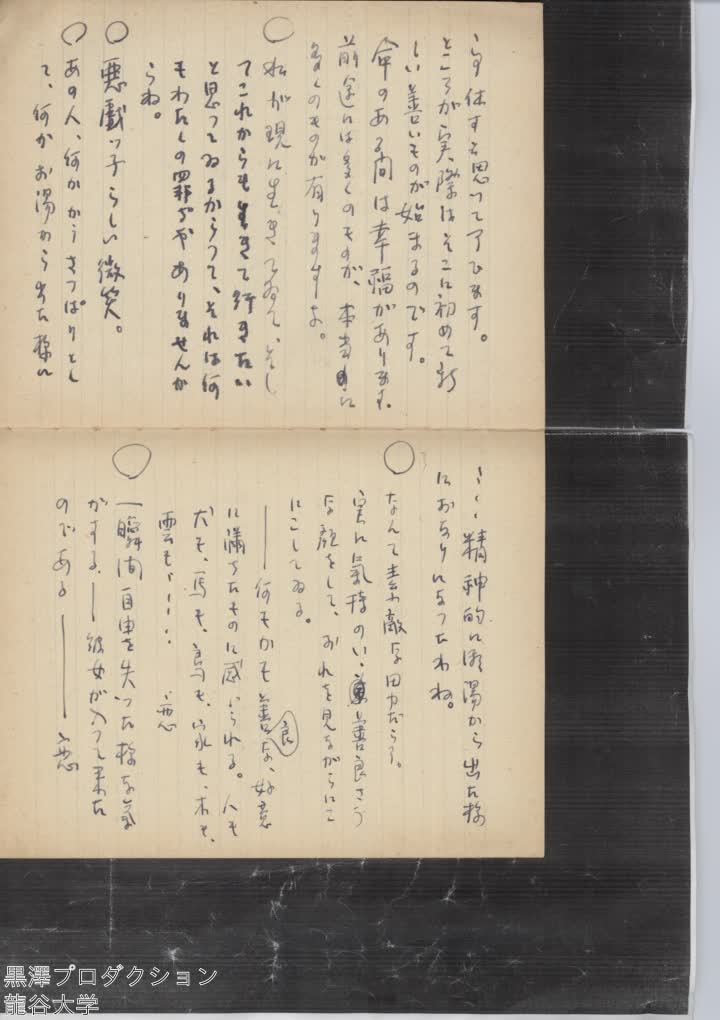 ら休すと思って了ひます。
ところが実際はそこに初めて新
しい善いものが始まるのです。
命のある間は幸福があります。
前途には多くのものが、本当に
多くのものが有りますよ。
○ 私が現に生きてゐて、そし
てこれからも生きて行きたい
と思ってゐるからって、それは何
もわたしの罪ぢやありませんか
らね。
○ 悪戯ッ子らしい微笑。
○ あの人、何かかうさっぱりとし
て、何かお湯から出た様に
……精神的に風湯から出た様
におなりになったわね。
○ なんて素敵な男だらう。
実に気持のいゝ善良さう
な顔をして、おれを見ながらにこ
にこしてゐる。
――何もかも善良な、好意
に満ちたものに感じられる。人も
犬も、馬も、鳥も、家も、木も、
雲も……
○ 一瞬間自由を失った様な気
がする、――彼女が入って来た
のである――
黒澤プロダクション
龍谷大学